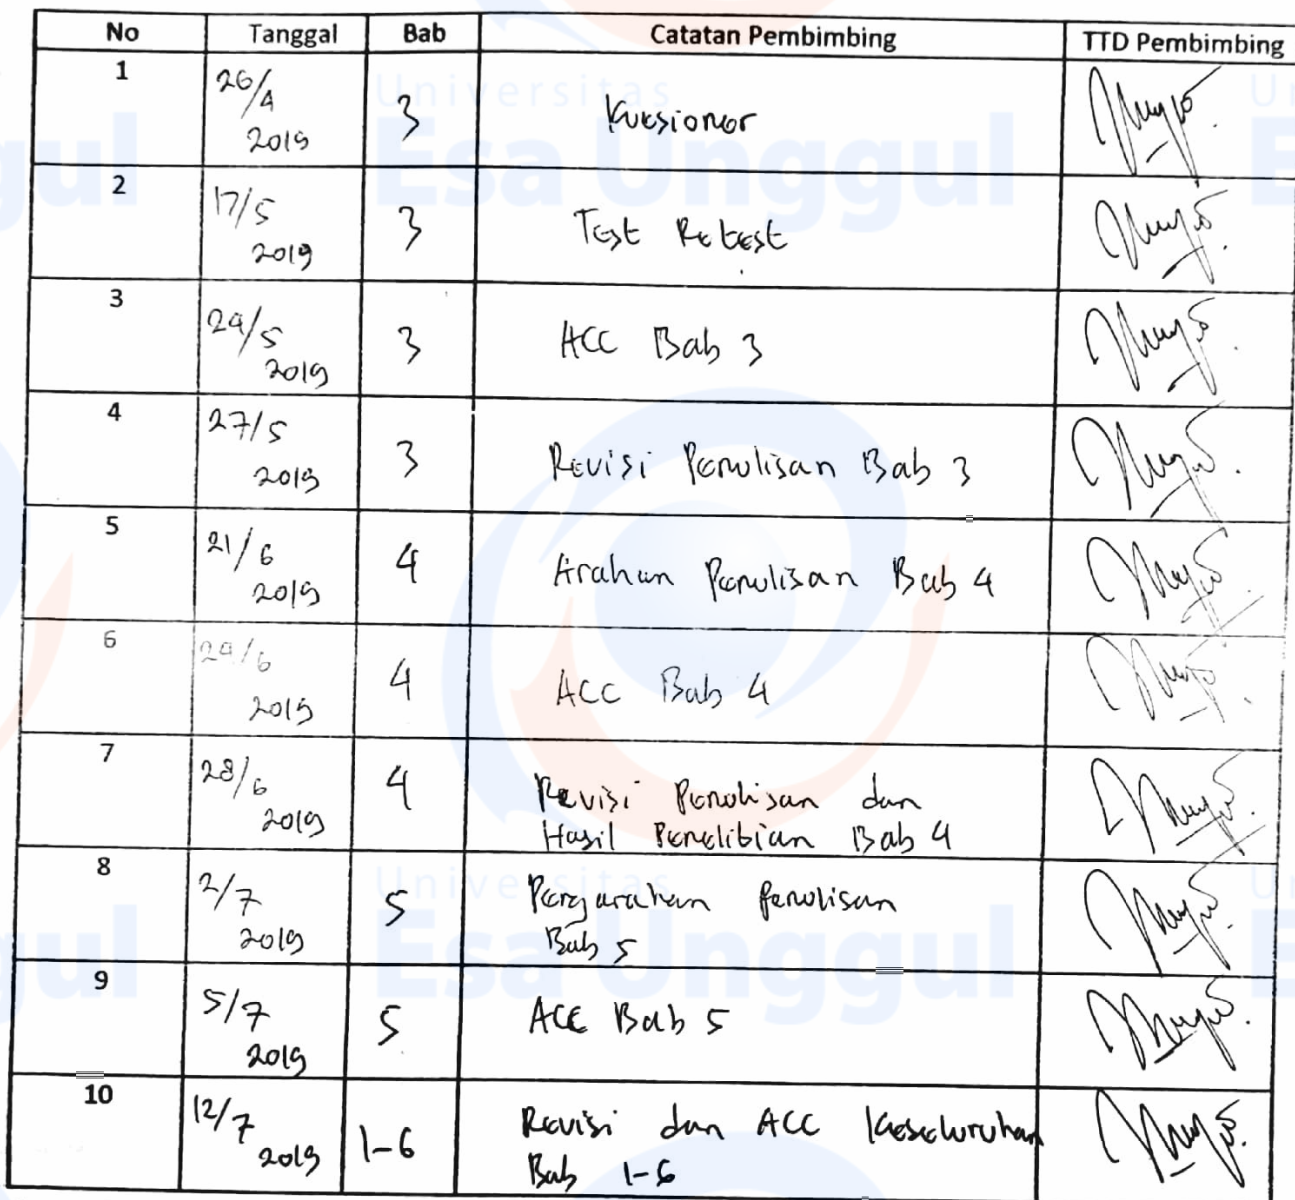 No Tanggal Bab Catatan Pembimbing TTD Pembimbing
1 26/4 2019 3 Kuesioner
2 17/5 2019 3 Test Retest
3 24/5 2019 3 ACC Bab 3
4 27/5 2019 3 Revisi Penulisan Bab 3
5 21/6 2019 4 Arahan Penulisan Bab 4
6 24/6 2019 4 ACC Bab 4
7 28/6 2019 4 Revisi Penulisan dan
Hasil Penelitian Bab 4
8 2/7 2019 5 Pengarahan Penulisan
Bab 5
9 5/7 2019 5 ACC Bab 5
10 12/7 2019 1-6 Revisi dan ACC Keseluruhan
Bab 1-6
Universitas
Esa Unggul
Universitas
Esa Unggul